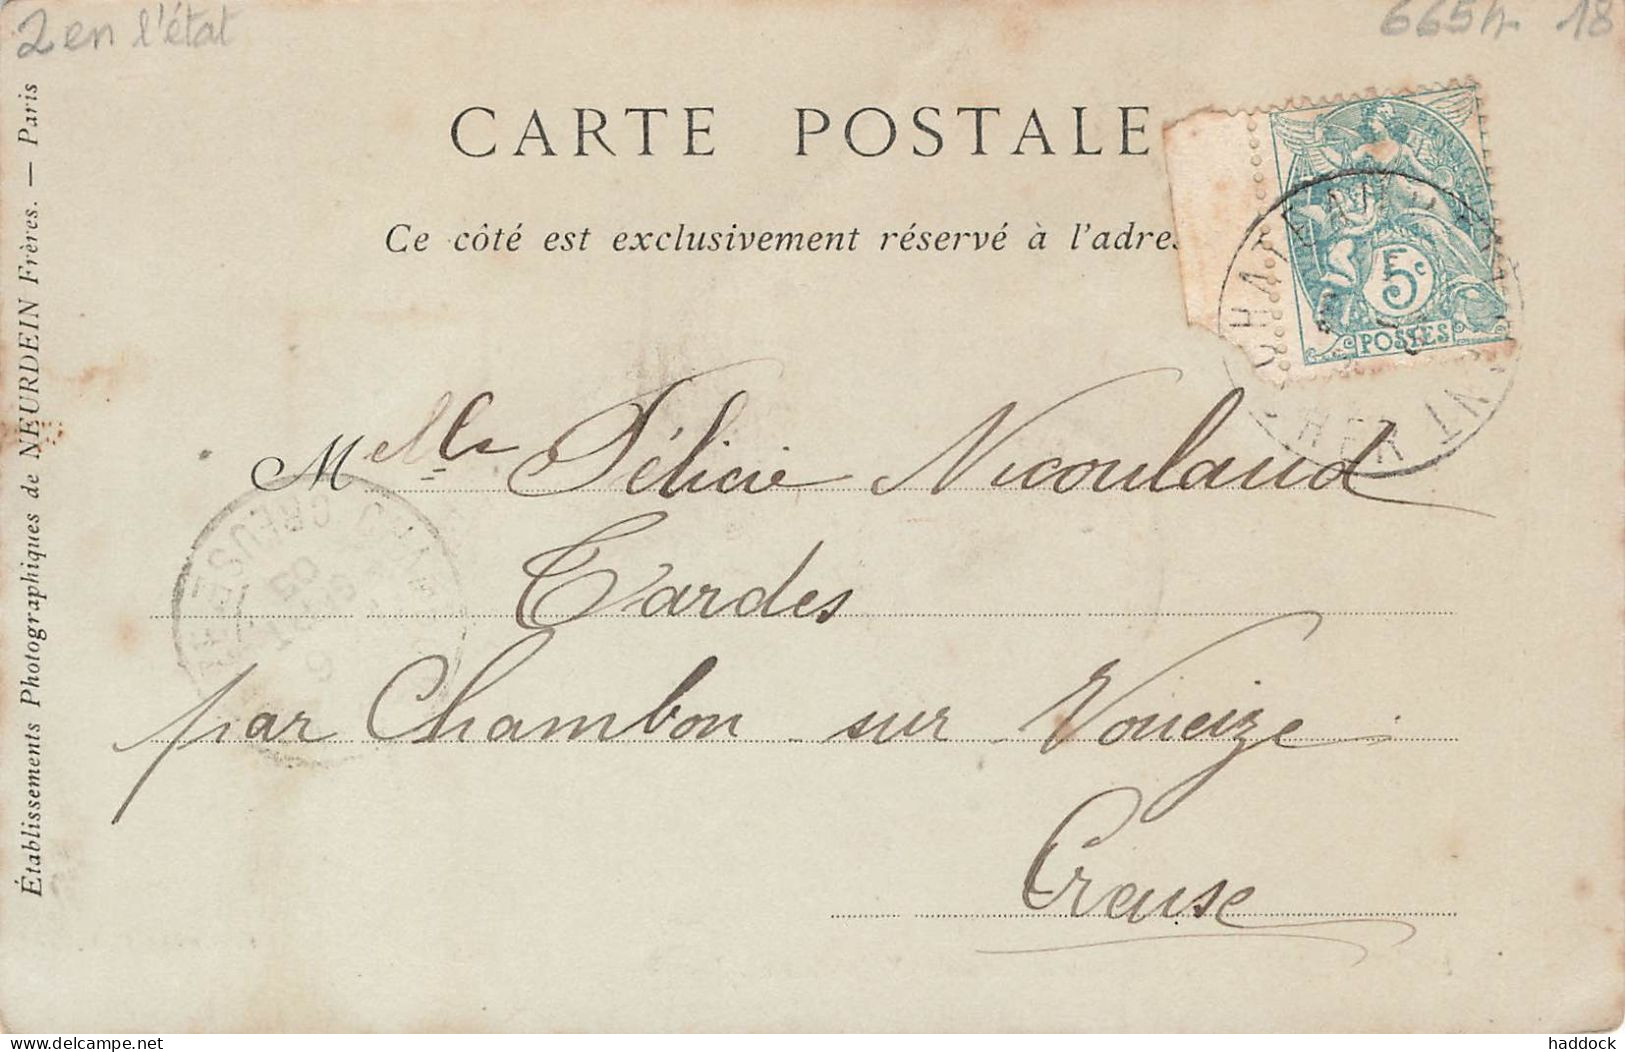 2 en l'état
6654 18
CARTE POSTALE
Ce côté est exclusivement réservé à l'adres
5c
POSTES
Melle Félicie Nicoulaud
Tardes
par Chambon sur Voueize
Creuse
CREUSE
Établissements Photographiques de NEURDEIN Frères. — Paris
Selection non enregistrée
haddock